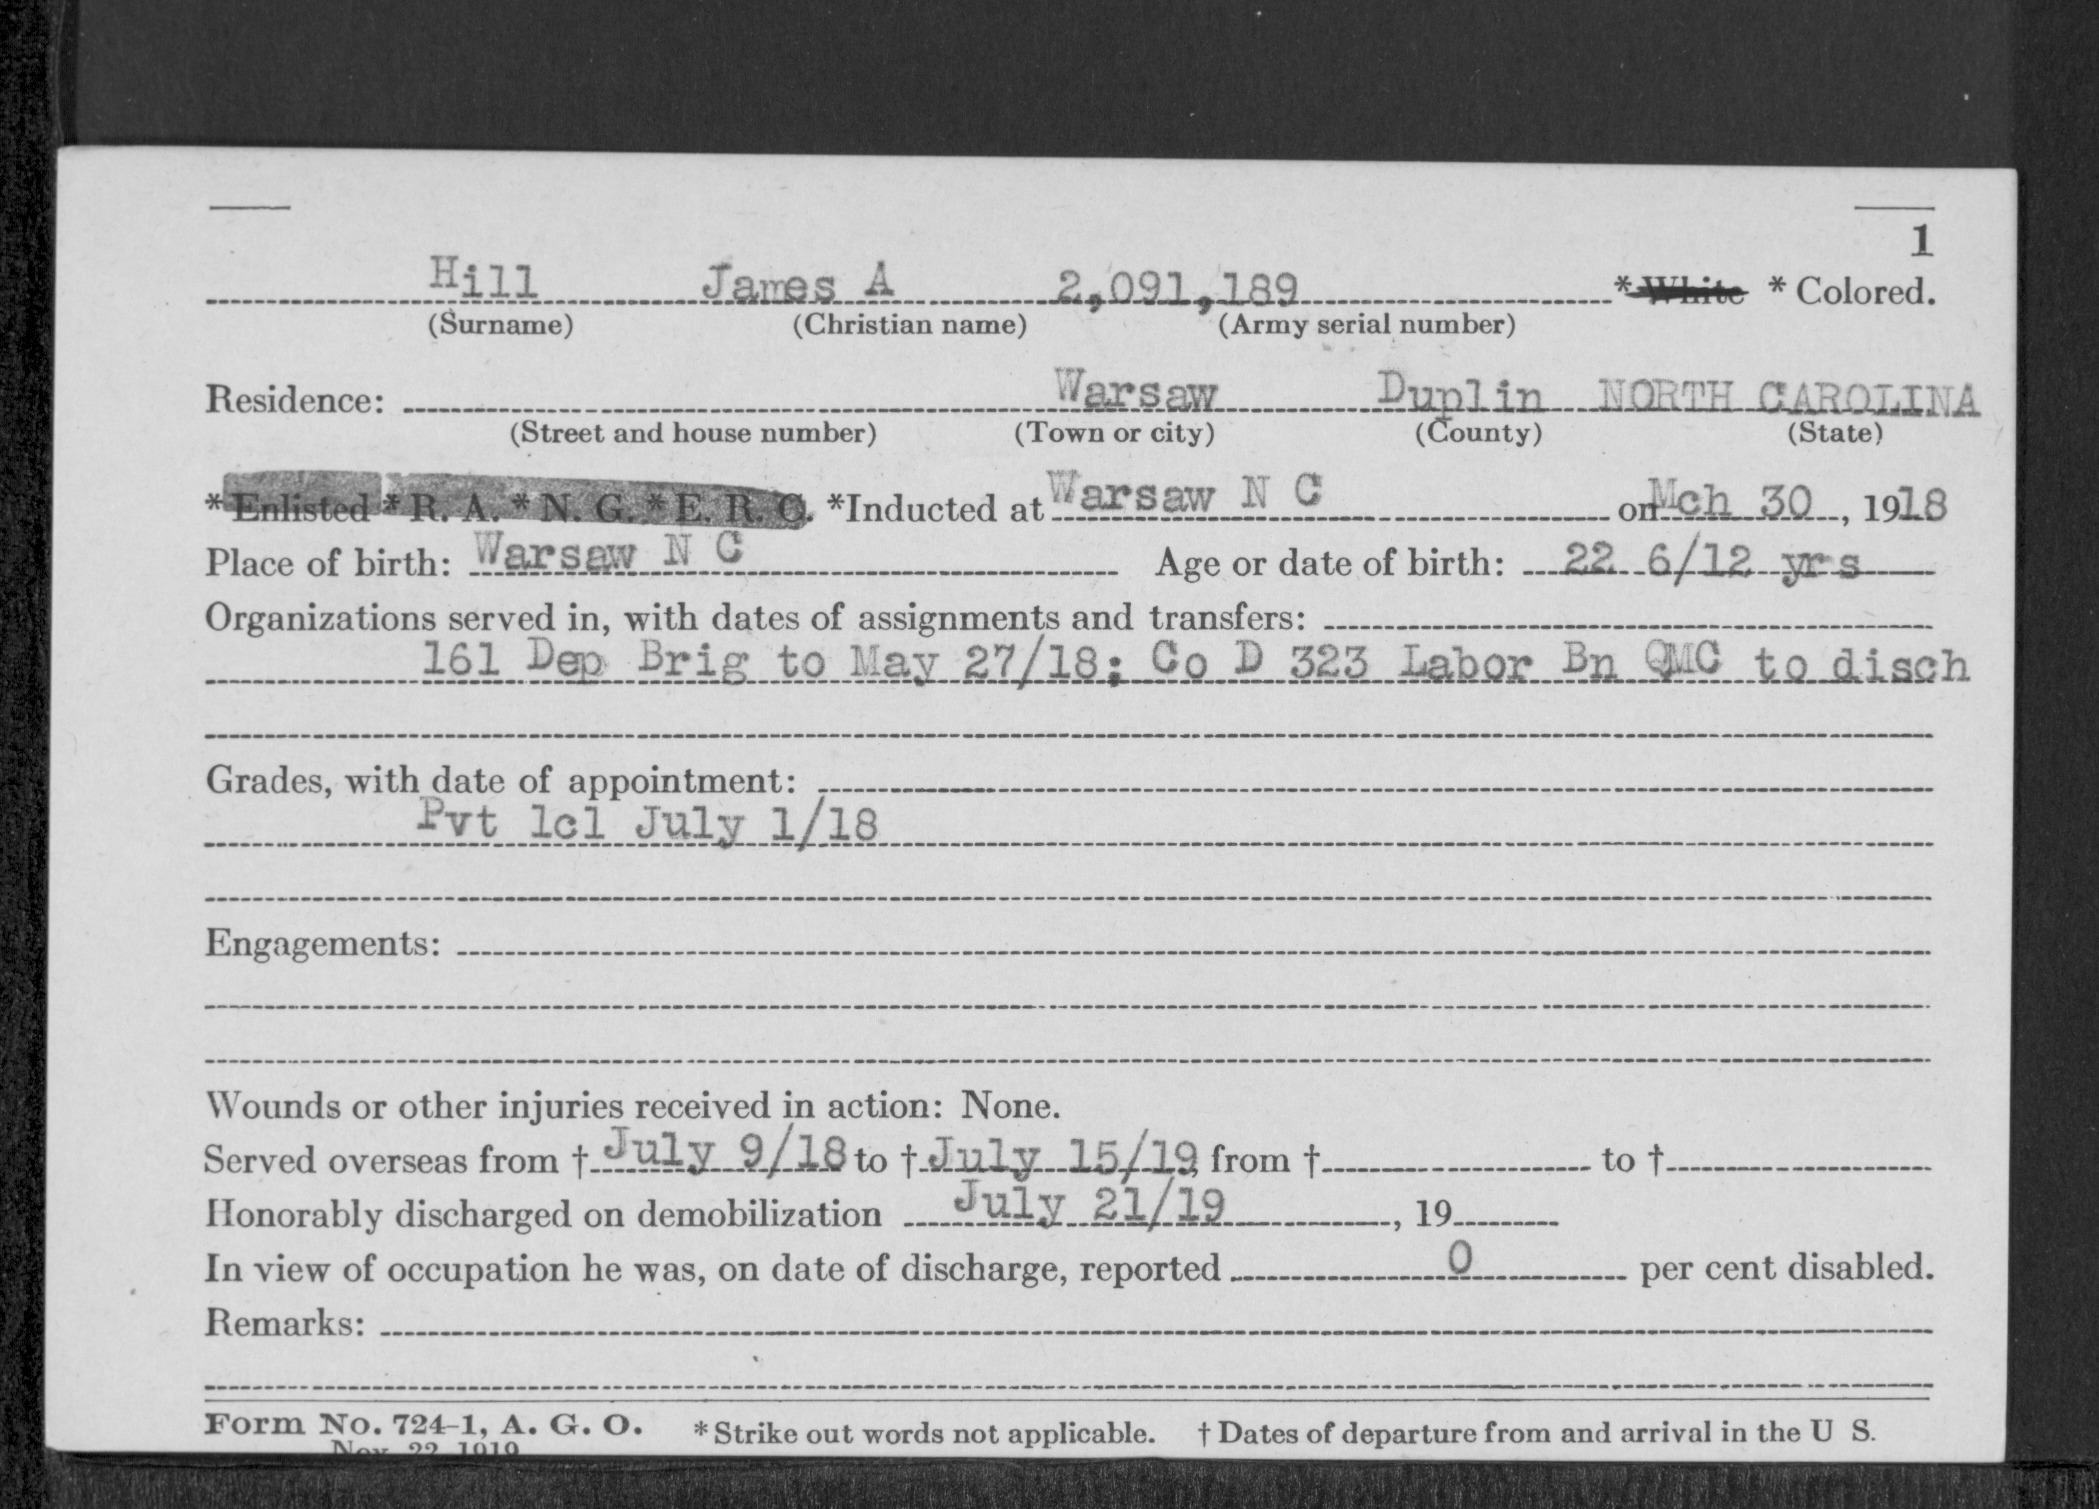 1
Hill James A 2,091,189 * White * Colored.
(Surname) (Christian name) (Army serial number)
Residence: Warsaw Duplin NORTH CAROLINA
(Street and house number) (Town or city) (County) (State)
* Enlisted * R. A. * N. G. * E. R. C. *Inducted at Warsaw N C on Mch 30, 1918
Place of birth: Warsaw N C Age or date of birth: 22 6/12 yrs
Organizations served in, with dates of assignments and transfers:
161 Dep Brig to May 27/18; Co D 323 Labor Bn QMC to disch
Grades, with date of appointment:
Pvt 1cl July 1/18
Engagements:
Wounds or other injuries received in action: None.
Served overseas from † July 9/18 to † July 15/19, from † to †
Honorably discharged on demobilization July 21/19, 19
In view of occupation he was, on date of discharge, reported 0 per cent disabled.
Remarks:
Form No. 724-1, A. G. O. * Strike out words not applicable. † Dates of departure from and arrival in the U S.
Nov. 22, 1919